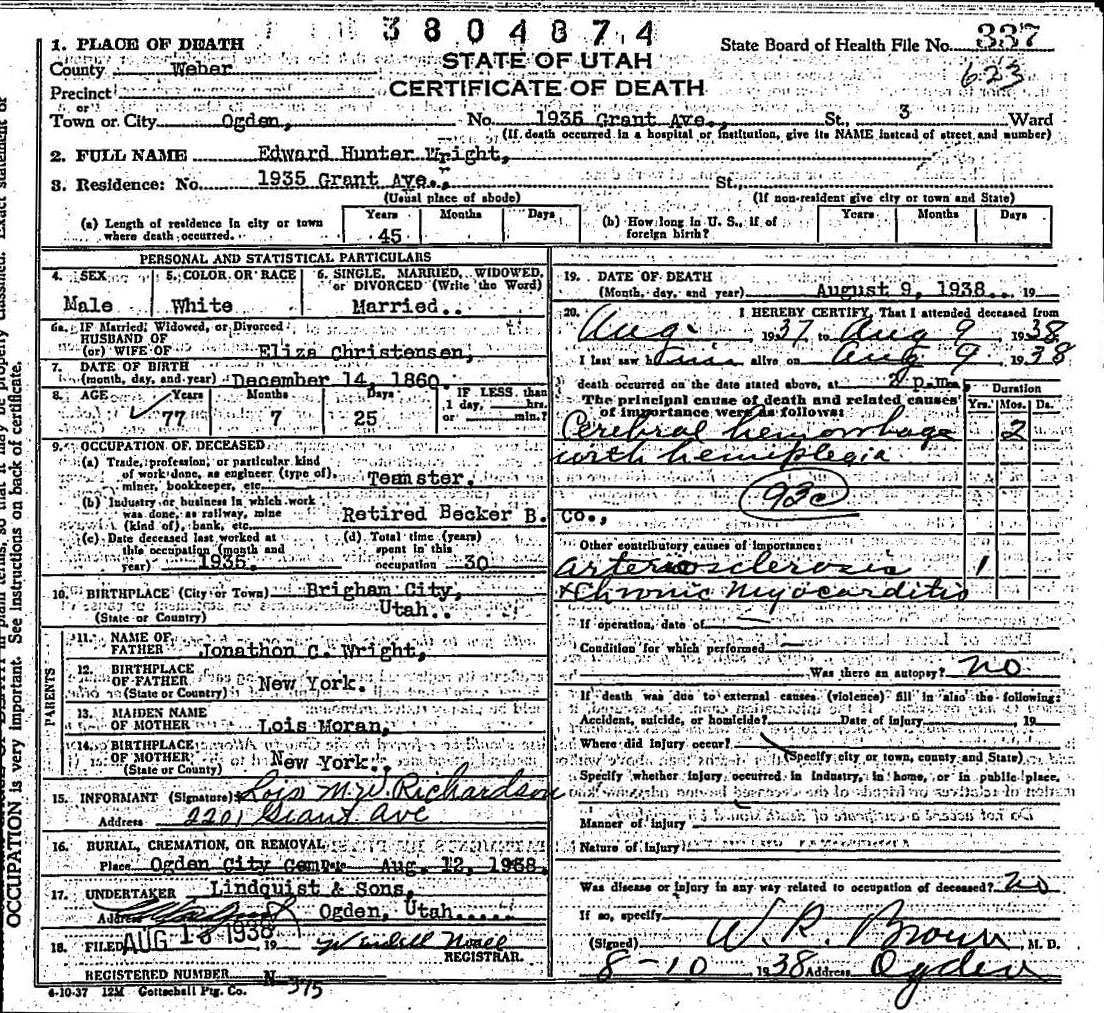 3804874
State Board of Health File No. 337
623
STATE OF UTAH
CERTIFICATE OF DEATH
1. PLACE OF DEATH
County Weber
Precinct
or
Town or City Ogden, No. 1935 Grant Ave., St., 3 Ward
(If death occurred in a hospital or institution, give its NAME instead of street and number)
2. FULL NAME Edward Hunter Wright,
3. Residence: No. 1935 Grant Ave., St.,
(Usual place of abode) (If non-resident give city or town and State)
(a) Length of residence in city or town where death occurred. Years 45 Months Days
(b) How long in U. S., if of foreign birth? Years Months Days
PERSONAL AND STATISTICAL PARTICULARS
4. SEX 5. COLOR OR RACE 6. SINGLE, MARRIED, WIDOWED, or DIVORCED (Write the Word)
Male White Married..
6a. IF Married, Widowed, or Divorced
HUSBAND OF
(or) WIFE OF Eliza Christensen,
7. DATE OF BIRTH
(month, day, and year) December 14, 1860.
8. AGE Years Months Days IF LESS than
1 day, hrs.
or min.?
77 7 25
9. OCCUPATION OF DECEASED
(a) Trade, profession, or particular kind
of work done, as engineer (type of),
miner, bookkeeper, etc. Teamster.
(b) Industry or business in which work
was done, as railway, mine
(kind of), bank, etc. Retired Becker B. Co.,
(c) Date deceased last worked at
this occupation (month and
year) 1935.
(d) Total time (years)
spent in this
occupation 30
10. BIRTHPLACE (City or Town) Brigham City,
(State or Country) Utah..
PARENTS
11. NAME OF
FATHER Jonathon C. Wright,
12. BIRTHPLACE
OF FATHER New York.
(State or Country)
13. MAIDEN NAME
OF MOTHER Lois Moran,
14. BIRTHPLACE
OF MOTHER New York.
(State or Country)
15. INFORMANT (Signature) Lois M. W. Richardson
Address 2201 Grant Ave
16. BURIAL, CREMATION, OR REMOVAL
Place Ogden City Cem Date Aug. 12, 1938.
17. UNDERTAKER Lindquist & Sons,
Address Ogden, Utah.....
18. FILED AUG 18 1938, 19 Wendell Noall
REGISTRAR.
REGISTERED NUMBER N-375
4-10-37 12M Gottschall Ptg. Co.
19. DATE OF DEATH
(Month, day, and year) August 9, 1938.., 19
20. I HEREBY CERTIFY, That I attended deceased from
Aug. 1937 to Aug 9 1938
I last saw him alive on Aug 9, 1938
death occurred on the date stated above, at 2 p.m. Duration
The principal cause of death and related causes
of importance were as follows: Yrs. Mos. Ds.
Cerebral hemorrhage 2
with hemiplegia
93c
Other contributory causes of importance:
Arteriosclerosis 1
+ Chronic Myocarditis
If operation, date of
Condition for which performed
Was there an autopsy? no
If death was due to external causes (violence) fill in also the following:
Accident, suicide, or homicide? Date of injury , 19
Where did injury occur?
(Specify city or town, county, and State)
Specify whether injury occurred in industry, in home, or in public place.
Manner of injury
Nature of injury
Was disease or injury in any way related to occupation of deceased? no
If so, specify
(Signed) W. R. Brown, M. D.
8-10 1938 Address Ogden
OCCUPATION is very important. See instructions on back of certificate.